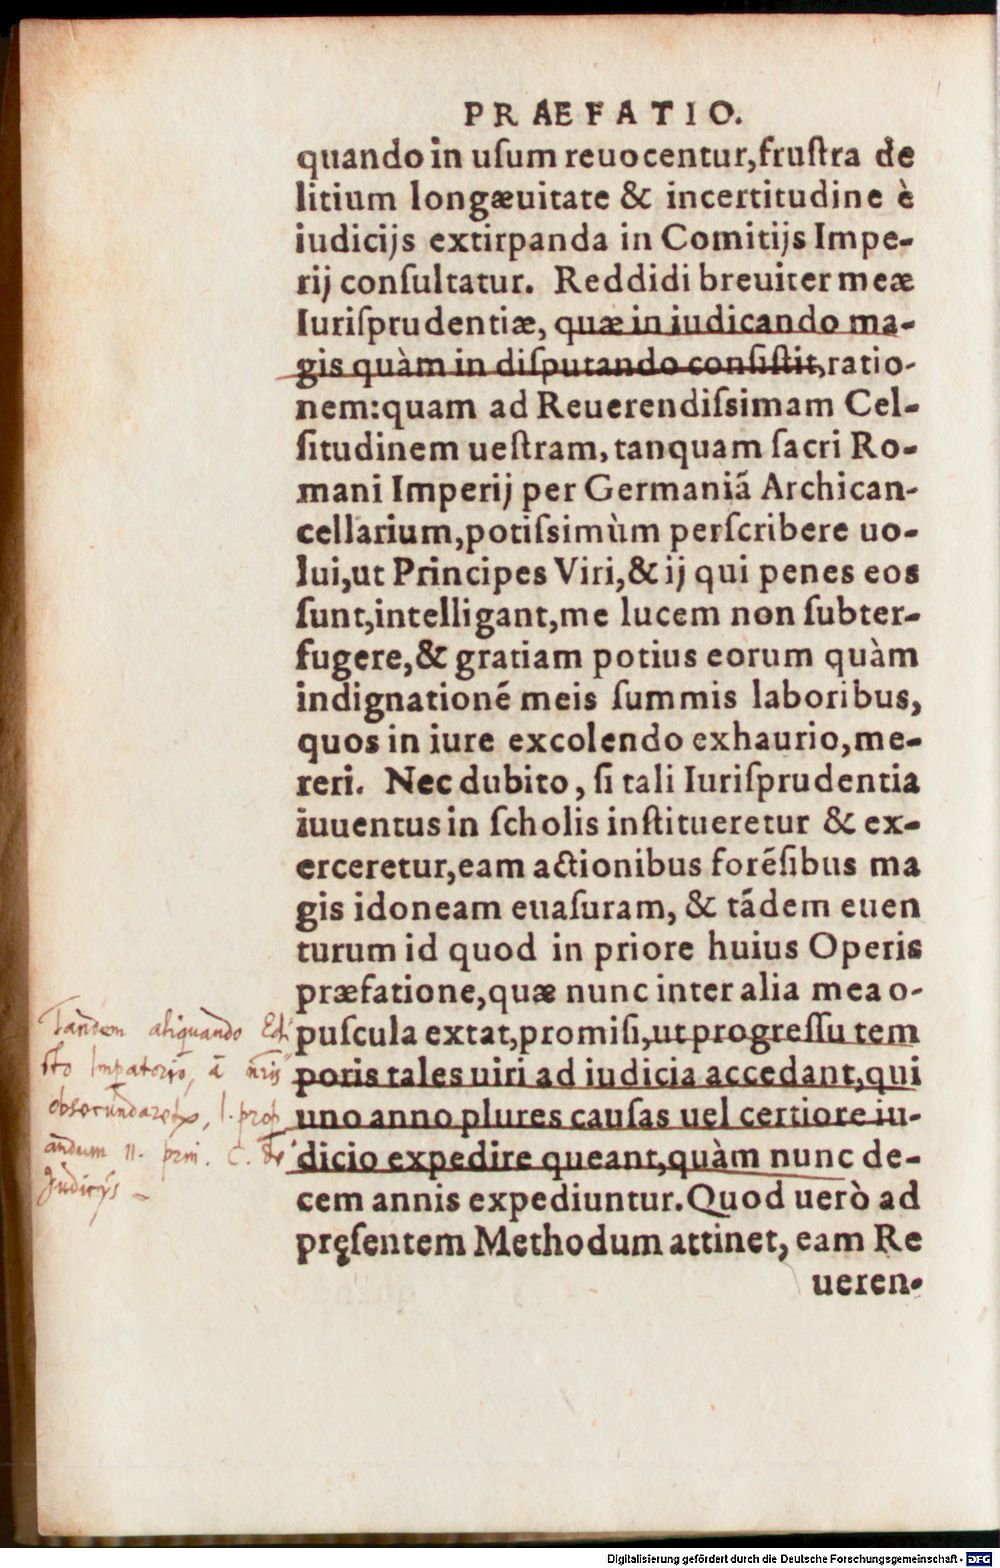 PRAEFATIO.
quando in uſum reuocentur,fruſtra de
litium longæuitate & incertitudine è
iudicijs extirpanda in Comitijs Impe-
rij conſultatur. Reddidi breuiter meæ
Iuriſprudentiæ, quæ in iudicando ma-
gis quàm in diſputando conſiſtit,ratio-
nem:quam ad Reuerendiſsimam Cel-
ſitudinem ueſtram, tanquam ſacri Ro-
mani Imperij per Germaniã Archican-
cellarium,potiſsimùm perſcribere uo-
lui,ut Principes Viri,& ij qui penes eos
ſunt,intelligant,me lucem non ſubter-
fugere,& gratiam potius eorum quàm
indignationẽ meis ſummis laboribus,
quos in iure excolendo exhaurio,me-
reri. Nec dubito, ſi tali Iuriſprudentia
iuuentus in ſcholis inſtitueretur & ex-
erceretur,eam actionibus forẽſibus ma
gis idoneam euaſuram, & tãdem euen
turum id quod in priore huius Operis
præfatione,quæ nunc inter alia mea o-
puſcula extat,promiſi,ut progreſſu tem
poris tales uiri ad iudicia accedant,qui
uno anno plures cauſas uel certiore iu-
dicio expedire queant,quàm nunc de-
cem annis expediuntur.Quod uerò ad
pręſentem Methodum attinet, eam Re
ueren-
Tandem aliquando Edi
cto Impatorio, à nr̃is
obsecundaretur, l. prop
andum 11. prin. C. de
Judicijs
Digitalisierung gefördert durch die Deutsche Forschungsgemeinschaft - DFG